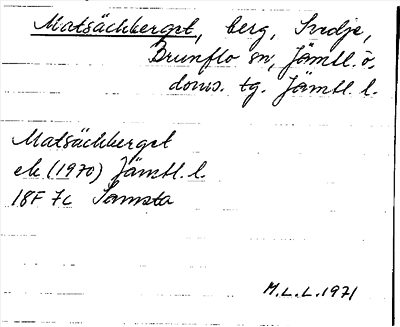 Matsäckberget, berg, Svedje,
Brunflo sn, Jämtl. ö.
doms. tg. Jämtl. l.
Matsäckberget
ek (1970) Jämtl. l.
18F 7c Samsta
M.L.L. 1971